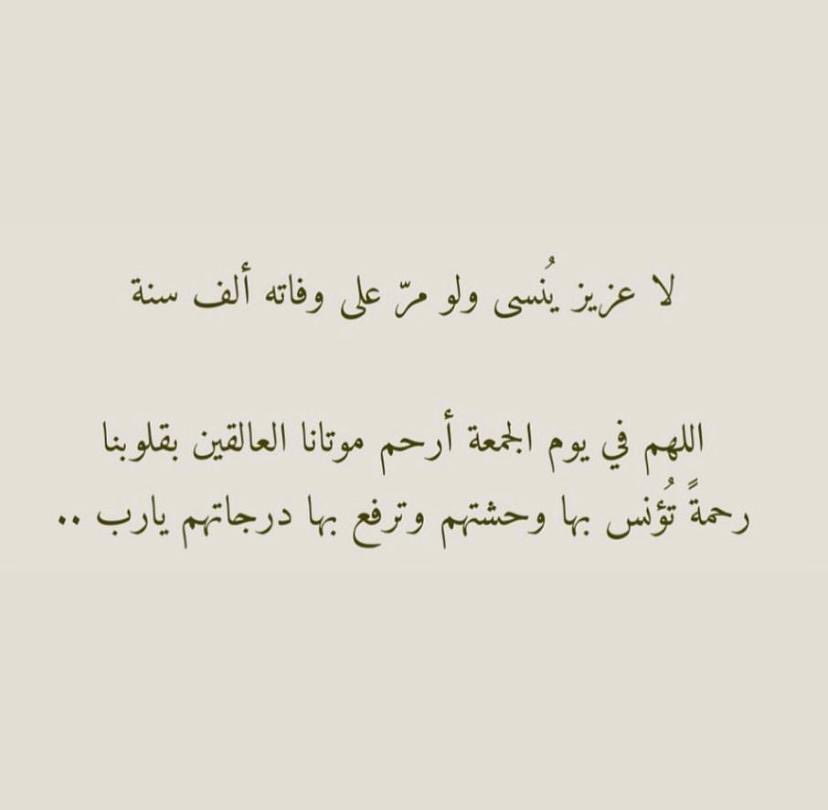 لا عزيز يُنسى ولو مرّ على وفاته ألف سنة
اللهم في يوم الجمعة أرحم موتانا العالقين بقلوبنا
رحمةً تُؤنس بها وحشتهم وترفع بها درجاتهم يارب ..